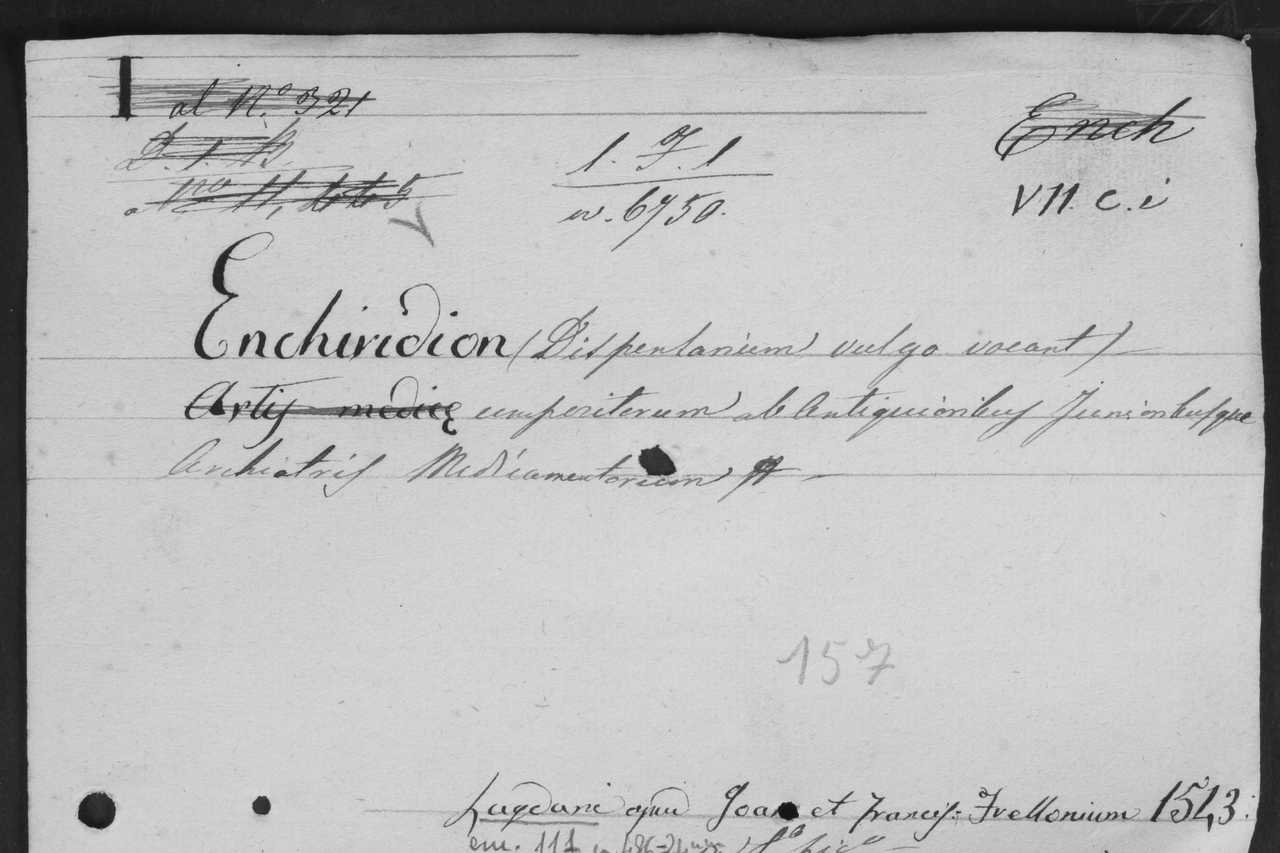 I al No. 321
D. 1. B.
a No 11,445
1. F. 1
w. 6750.
Ench
VII. c. i
Enchiridion (Dispensarium vulgo vocant)
Artis medicę compositorum ab Antiquioribus Junioribusque
Archiatris Medicamentorum
157
Lugduni apud Joan et Francis: Frellonium 1543: